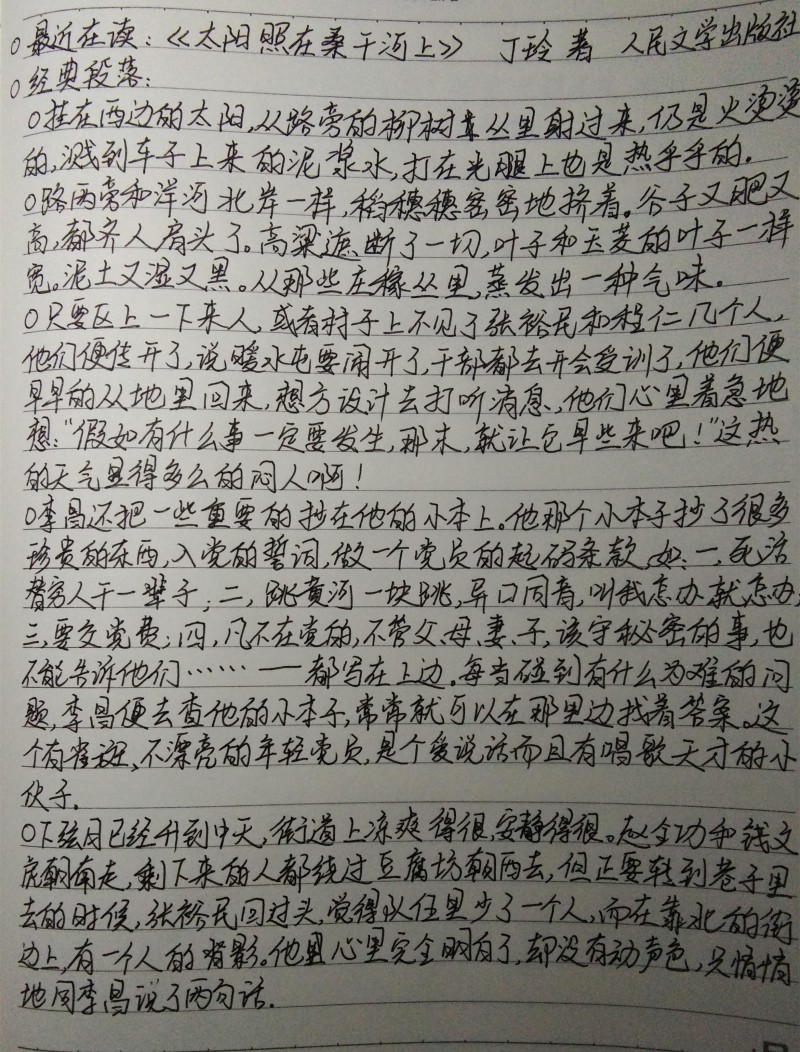 ○最近在读：《太阳照在桑干河上》 丁玲 著 人民文学出版社
○经典段落：
○挂在西边的太阳，从路旁的柳树丛里射过来，仍是火烫烫
的，溅到车子上来的泥浆水，打在光腿上也是热乎乎的。
○路两旁和洋河北岸一样，稻穗穗密密地挤着。谷子又肥又
高，都齐人肩头了。高粱遮断了一切，叶子和玉茭的叶子一样
宽。泥土又湿又黑。从那些庄稼丛里，蒸发出一种气味。
○只要区上一下来人，或者村子上不见了张裕民和程仁几个人，
他们便传开了，说暖水屯要闹开了，干部都去开会受训了，他们便
早早的从地里回来，想方设计去打听消息，他们心里着急地
想：“假如有什么事一定要发生，那末，就让它早些来吧！”这热
的天气显得多么的闷人啊！
○李昌还把一些重要的抄在他的小本上。他那个小本子抄了很多
珍贵的东西，入党的誓词，做一个党员的起码条款，如：一，死活
替穷人干一辈子；二，跳黄河一块跳，异口同音，叫我怎办就怎办；
三，要交党费；四，凡不在党的，不管父、母、妻、子，该守秘密的事，也
不能告诉他们……——都写在上边。每当碰到有什么为难的问
题，李昌便去查他的小本子，常常就可以在那里边找着答案。这
个有雀斑、不漂亮的年轻党员，是个爱说话而且有唱歌天才的小
伙子。
○下弦月已经升到中天，街道上凉爽得很，安静得很。赵全功和钱文
虎朝南走，剩下来的人都绕过豆腐坊朝西去，但正要转到巷子里
去的时候，张裕民回过头，觉得队伍里少了一个人，而在靠北的街
边上，有一个人的背影。他里心里完全明白了，却没有动声色，只悄悄
地同李昌说了两句话。